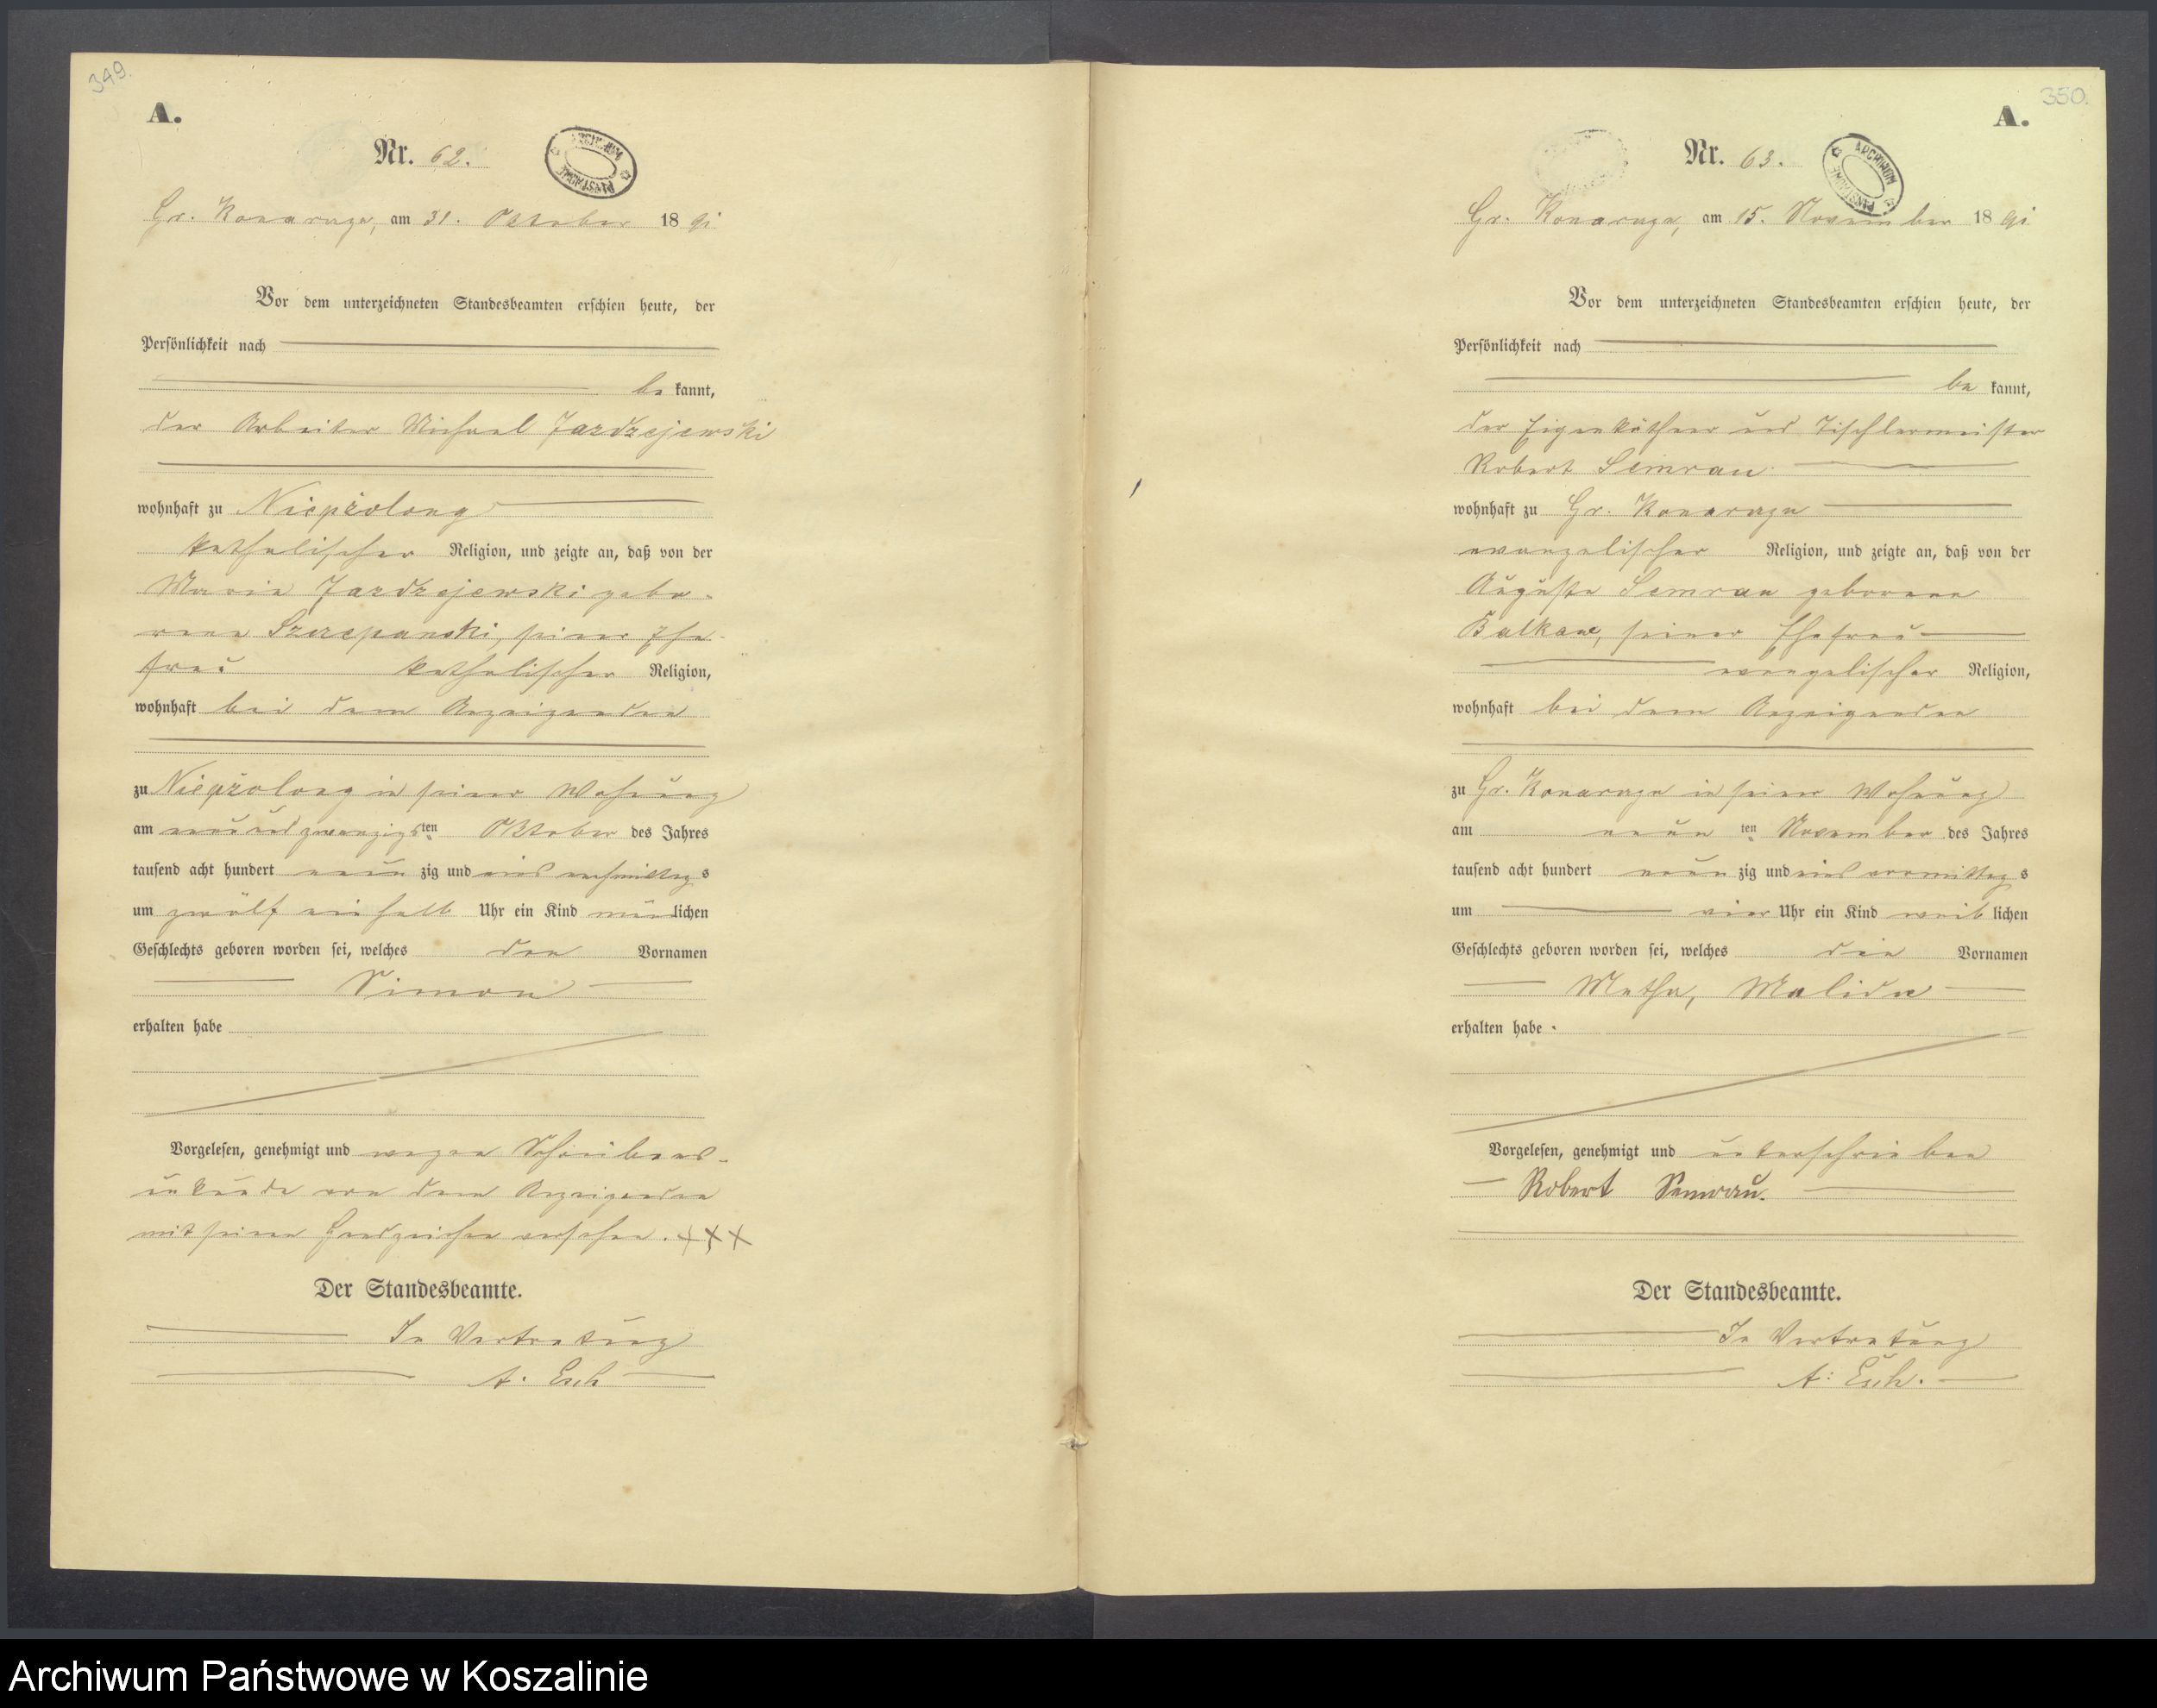 349.
A.
Nr. 62.
ARCHIWUM PAŃSTWOWE
Gr. Konarczyn, am 31. Oktober 18 91
Vor dem unterzeichneten Standesbeamten erschien heute, der
Persönlichkeit nach
be kannt,
der Arbeiter Michael Jazdzejewski
wohnhaft zu Niepszolong
katholischer Religion, und zeigte an, daß von der
Maria Jazdzejewski gebo-
rene Szczepanski, seiner Ehe-
frau katholischer Religion,
wohnhaft bei dem Anzeigenden
zu Niepszolong in seiner Wohnung
am neunundzwanzigsten Oktober des Jahres
tausend acht hundert neun zig und eins nachmittags
um zwölf ein halb Uhr ein Kind männlichen
Geschlechts geboren worden sei, welches den Vornamen
Simon
erhalten habe
Vorgelesen, genehmigt und wegen Schreibens-
unkunde von dem Anzeigenden
mit seinen Handzeichen versehen. +++
Der Standesbeamte.
In Vertretung
A. Esch
350.
A.
Nr. 63.
ARCHIWUM PAŃSTWOWE
Gr. Konarczyn, am 15. November 18 91
Vor dem unterzeichneten Standesbeamten erschien heute, der
Persönlichkeit nach
be kannt,
der Eigenkäthner und Tischlermeister
Robert Semrau
wohnhaft zu Gr. Konarczyn
evangelischer Religion, und zeigte an, daß von der
Auguste Semrau geborene
Balkau, seiner Ehefrau
evangelischer Religion,
wohnhaft bei dem Anzeigenden
zu Gr. Konarczyn in seiner Wohnung
am neun ten November des Jahres
tausend acht hundert neun zig und eins vormittags
um vier Uhr ein Kind weib lichen
Geschlechts geboren worden sei, welches die Vornamen
Metha, Malida
erhalten habe.
Vorgelesen, genehmigt und unterschrieben
Robert Semrau.
Der Standesbeamte.
In Vertretung
A: Esch.
Archiwum Państwowe w Koszalinie